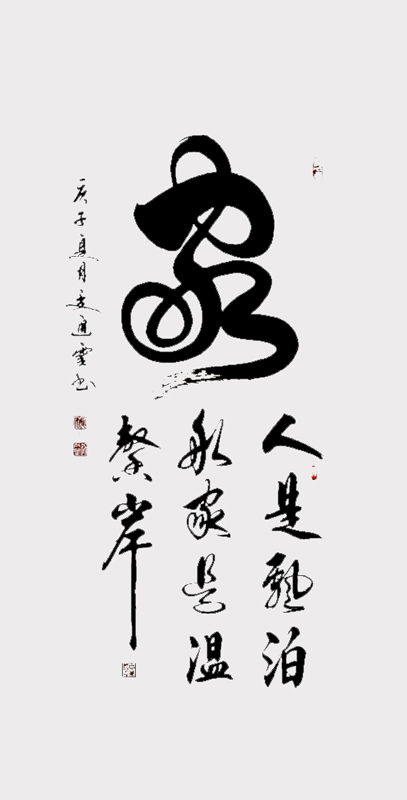 家
人是飘泊
船家是温
馨岸
庚子夏月文通雲书